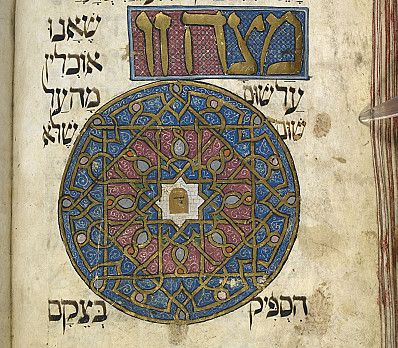 מצה זו
שאנו
אוכלין
על שום מה על
שום שלא
הספיק בצקם